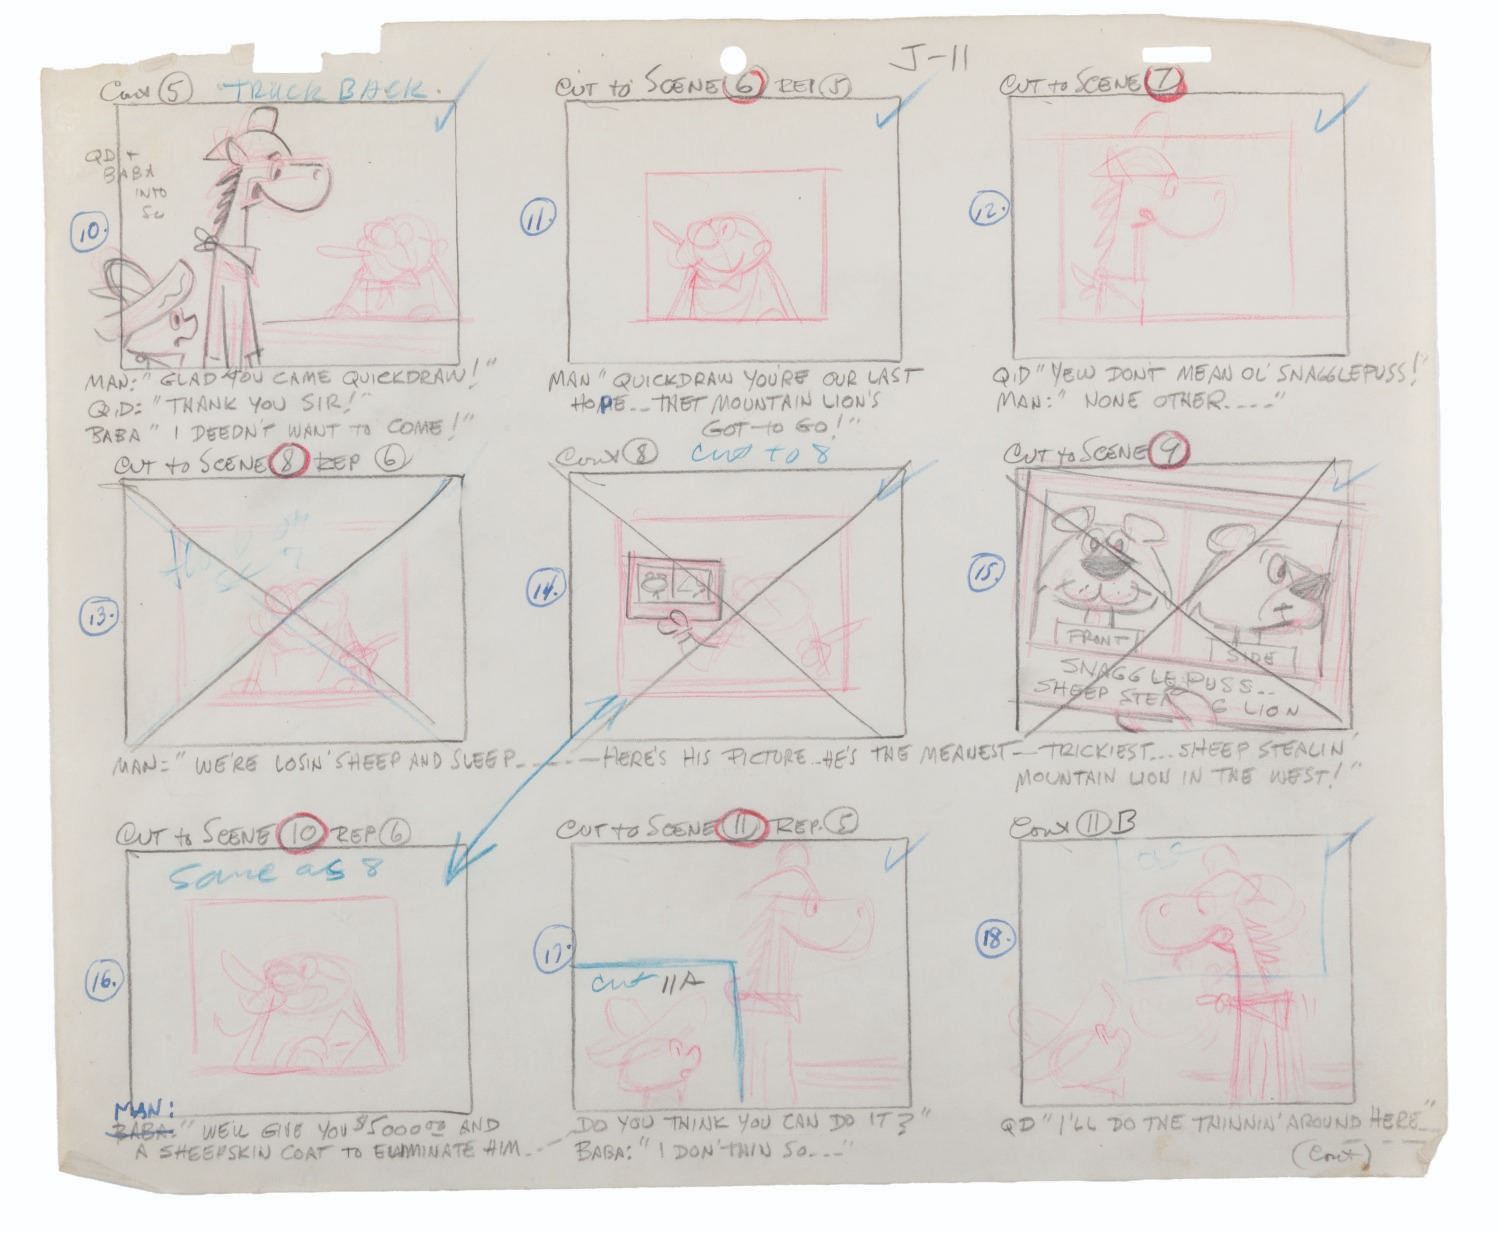 J-11
Cont 5 TRUCK BACK.
QD +
BABA
INTO
Sc
10.
MAN: "GLAD YOU CAME QUICKDRAW!"
Q.D: "THANK YOU SIR!"
BABA "I DEEDN'T WANT TO COME!"
CUT to SCENE 6 REP 5
11.
MAN "QUICKDRAW YOU'RE OUR LAST
HOPE... THET MOUNTAIN LION'S
GOT-TO GO!"
CUT to SCENE 7
12.
Q.D "YEW DON'T MEAN OL' SNAGGLEPUSS!"
MAN: "NONE OTHER...."
CUT to SCENE 8 REP 6
7
13.
MAN: "WE'RE LOSIN' SHEEP AND SLEEP......
Cont 8 cut to 8
14.
—HERE'S HIS PICTURE..HE'S THE MEANEST—
CUT to SCENE 9
15.
FRONT
SIDE
SNAGGLEPUSS..
SHEEP STEA G LION
TRICKIEST... SHEEP STEALIN'
MOUNTAIN LION IN THE WEST!"
CUT to SCENE 10 REP 6
Same as 8
16.
MAN:
BABA: "WE'LL GIVE YOU $5000.00 AND
A SHEEPSKIN COAT TO ELIMINATE HIM...
CUT to SCENE 11 REP. 5
17.
cut 11A
DO YOU THINK YOU CAN DO IT?"
BABA: "I DON' THIN SO...."
Cont 11 B
18.
QD "I'LL DO THE THINNIN' AROUND HERE"
(Cont)